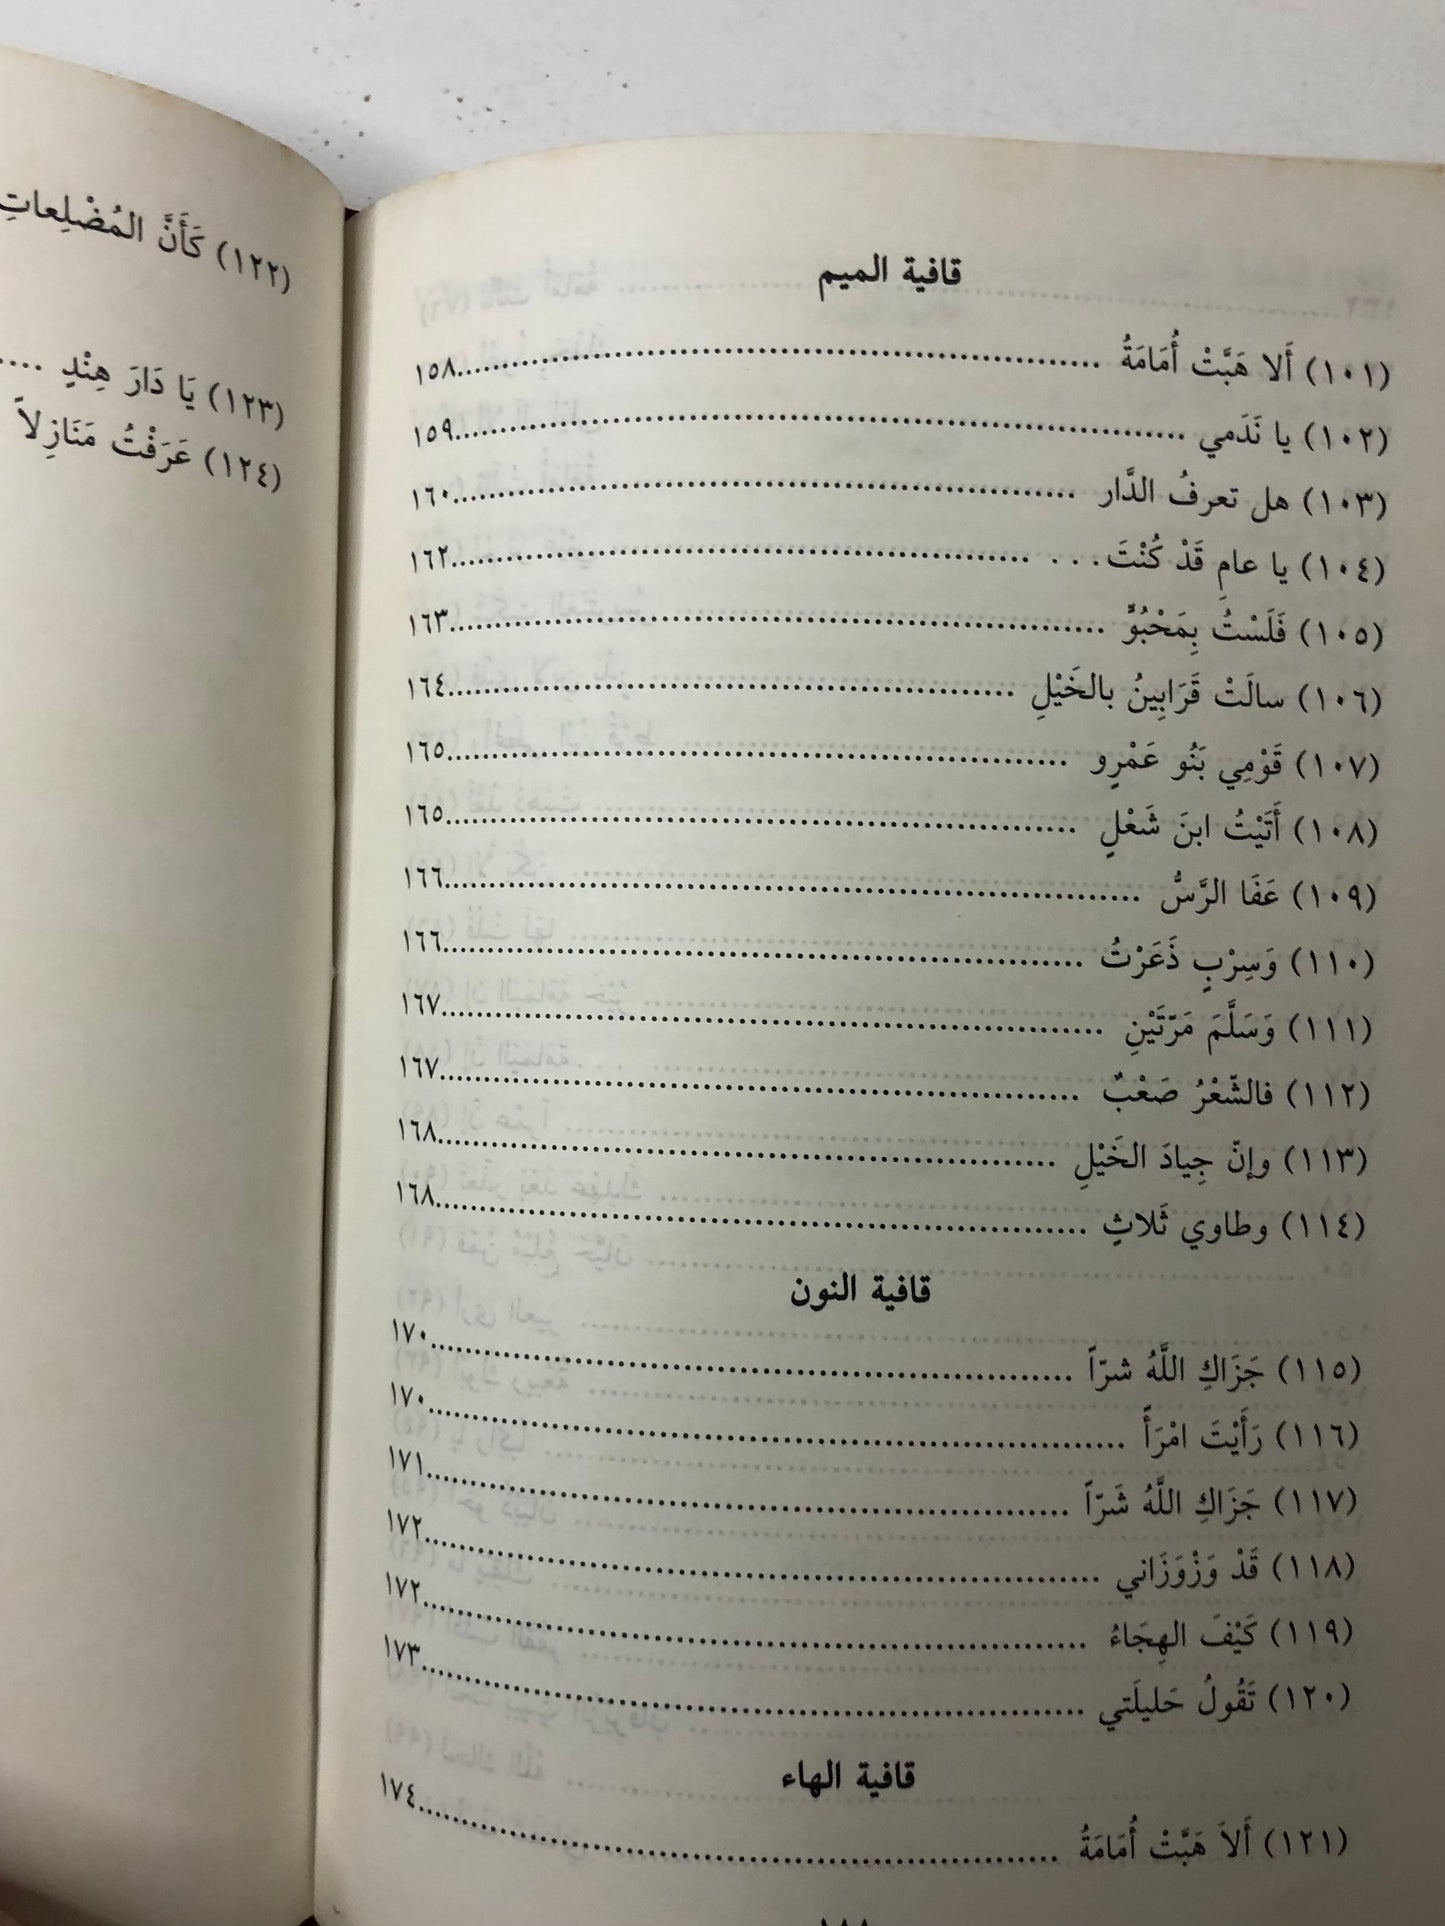 قافية الميم
(١٠١) أَلا هَبَّتْ أُمَامَةُ ........ ١٥٨
(١٠٢) يا نَدَمي ........ ١٥٩
(١٠٣) هل تعرفُ الدَّار ........ ١٦٠
(١٠٤) يا عامِ قَدْ كُنْتَ... ........ ١٦٢
(١٠٥) فَلَسْتُ بِمَحْبُوٍّ ........ ١٦٣
(١٠٦) سالَتْ قَرَابِينُ بالخَيْلِ ........ ١٦٤
(١٠٧) قَوْمِي بَنُو عَمْرِو ........ ١٦٥
(١٠٨) أَتَيْتُ ابنَ شَعْلٍ ........ ١٦٥
(١٠٩) عَفَا الرَّسُّ ........ ١٦٦
(١١٠) وَسِرْبٍ ذَعَرْتُ ........ ١٦٦
(١١١) وَسَلَّمَ مَرّتَيْنِ ........ ١٦٧
(١١٢) فالشّعْرُ صَعْبٌ ........ ١٦٧
(١١٣) وإنّ جِيادَ الخَيْلِ ........ ١٦٨
(١١٤) وطاوي ثَلاثٍ ........ ١٦٨
قافية النون
(١١٥) جَزَاكِ اللَّهُ شرّاً ........ ١٧٠
(١١٦) رَأَيْتَ امْرَأً ........ ١٧٠
(١١٧) جَزَاكِ اللَّهُ شَرّاً ........ ١٧١
(١١٨) قَدْ وَزْوَزَاني ........ ١٧٢
(١١٩) كَيْفَ الهِجَاءُ ........ ١٧٢
(١٢٠) تَقُولُ حَليلَتي ........ ١٧٣
قافية الهاء
(١٢١) أَلاَ هَبَّتْ أُمَامَةُ ........ ١٧٤
(١٢٢) كَأَنَّ المُضْلِعاتِ
(١٢٣) يَا دَارَ هِنْدٍ ....
(١٢٤) عَرَفْتُ مَنَازِلاً